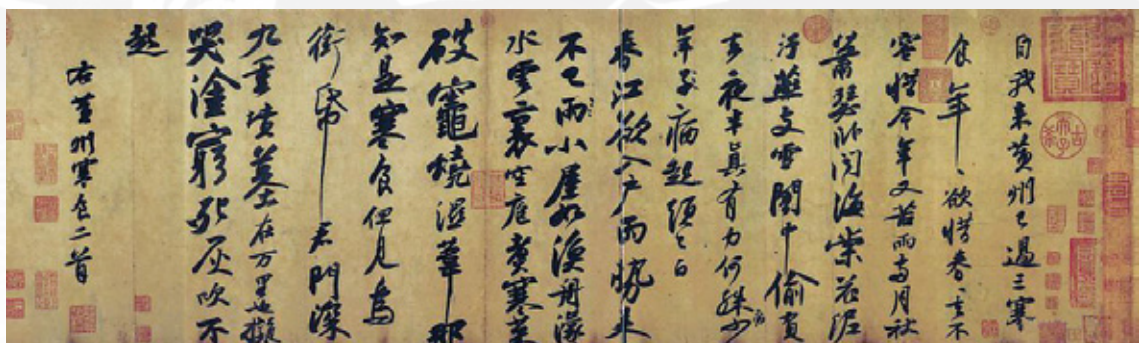 自我来黄州已過三寒
食年〻欲惜春〻去不
容惜今年又苦雨兩月秋
蕭瑟卧聞海棠花泥
汙燕支雪闇中偷負
去夜半真有力何殊少
年子病起頭已白
春江欲入戶雨勢来
不已雨小屋如漁舟濛〻
水雲裏空庖煑寒菜
破竈燒濕葦那
知是寒食但見烏
銜帋君門深
九重墳墓在万里也擬
哭塗窮死灰吹不
起
右黄州寒食二首